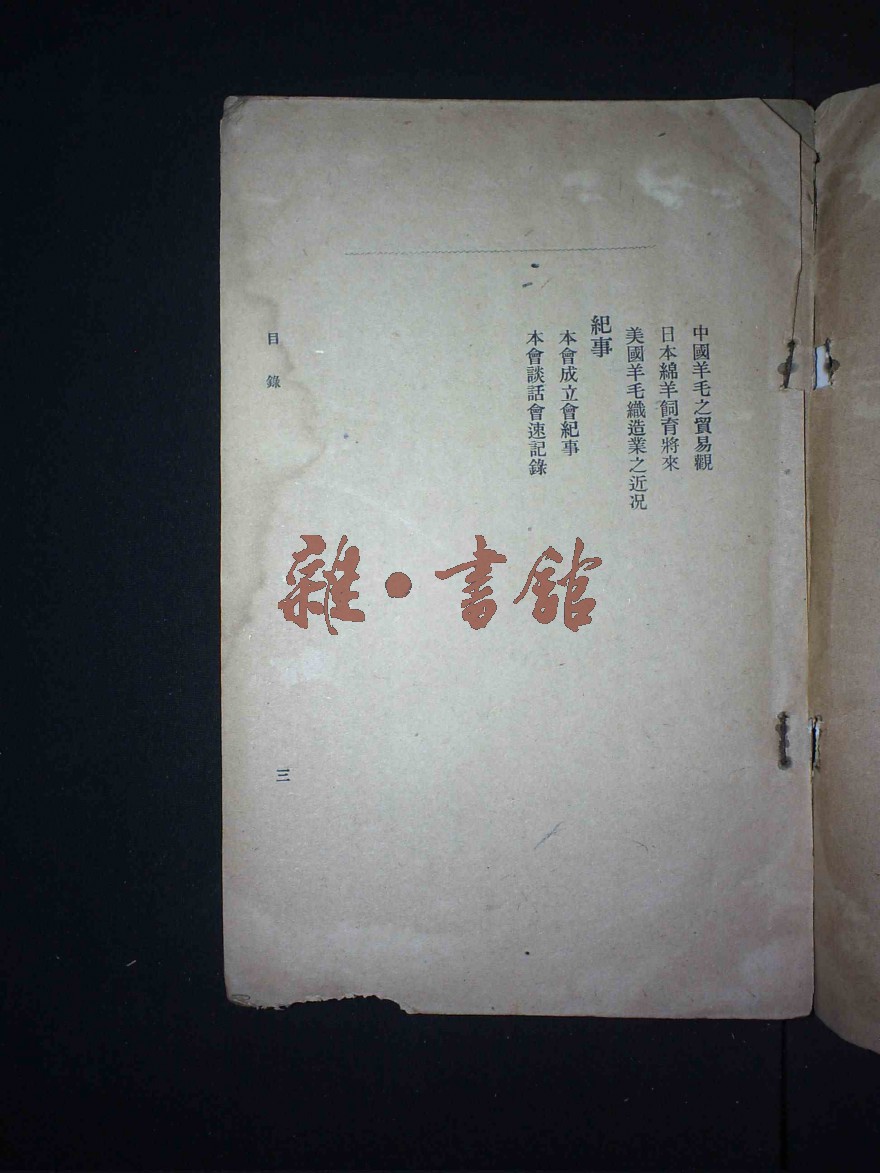 中國羊毛之貿易觀
日本綿羊飼育將來
美國羊毛織造業之近況
紀事
本會成立會紀事
本會談話會速記錄
目錄
三
雜·書館